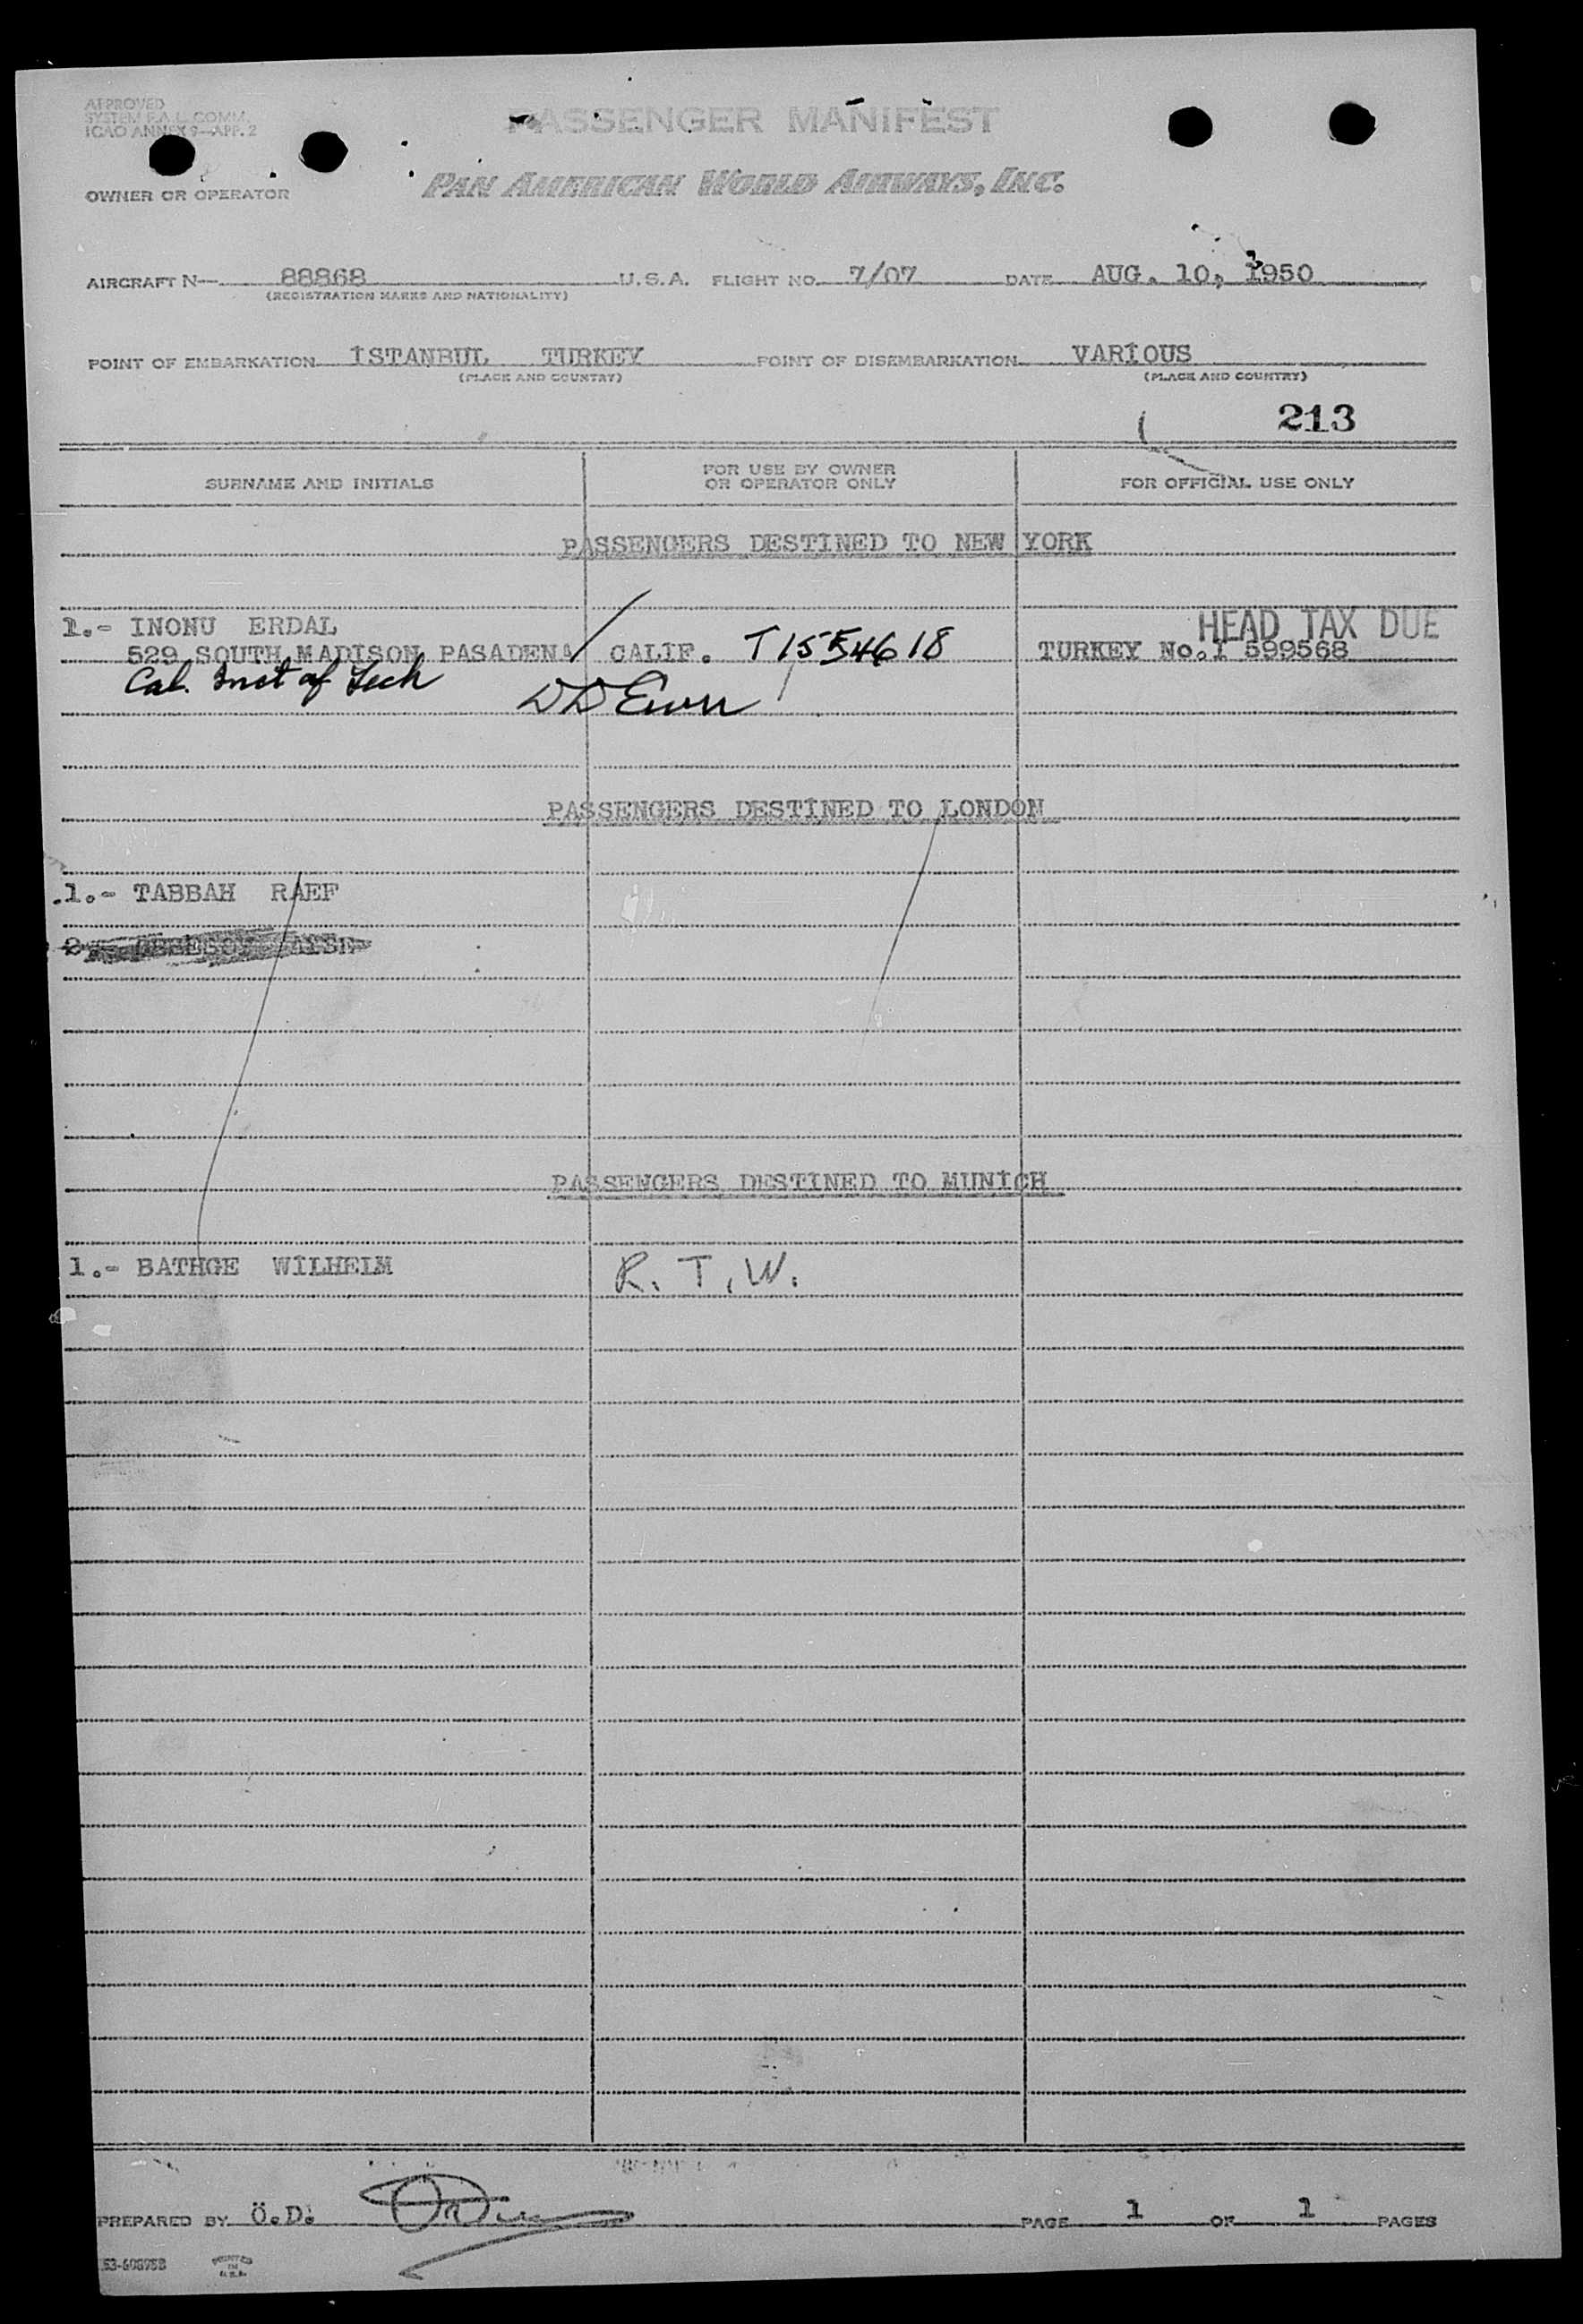 APPROVED
SYSTEM F.A.L. COMM.
ICAO ANNEX 9—APP. 2
PASSENGER MANIFEST
OWNER OR OPERATOR
PAN AMERICAN WORLD AIRWAYS, INC.
AIRCRAFT N— 88868 U.S.A. FLIGHT NO. 7/07 DATE AUG. 10, 1950
(REGISTRATION MARKS AND NATIONALITY)
POINT OF EMBARKATION İSTANBUL TURKEY POINT OF DISEMBARKATION VARİOUS
(PLACE AND COUNTRY) (PLACE AND COUNTRY)
213
SURNAME AND INITIALS
FOR USE BY OWNER
OR OPERATOR ONLY
FOR OFFICIAL USE ONLY
PASSENGERS DESTINED TO NEW YORK
HEAD TAX DUE
1.- INONU ERDAL
529 SOUTH MADISON PASADENA / CALIF. T1554618 TURKEY No.I 599568
Cal. Inst of Tech
PASSENGERS DESTİNED TO LONDON
1.- TABBAH RAEF
PASSENGERS DESTİNED TO MUNİCH
1.- BATHGE WİLHELM R.T.W.
PREPARED BY Ö.D. PAGE 1 OF 1 PAGES
PRINTED
IN
U.S.A.